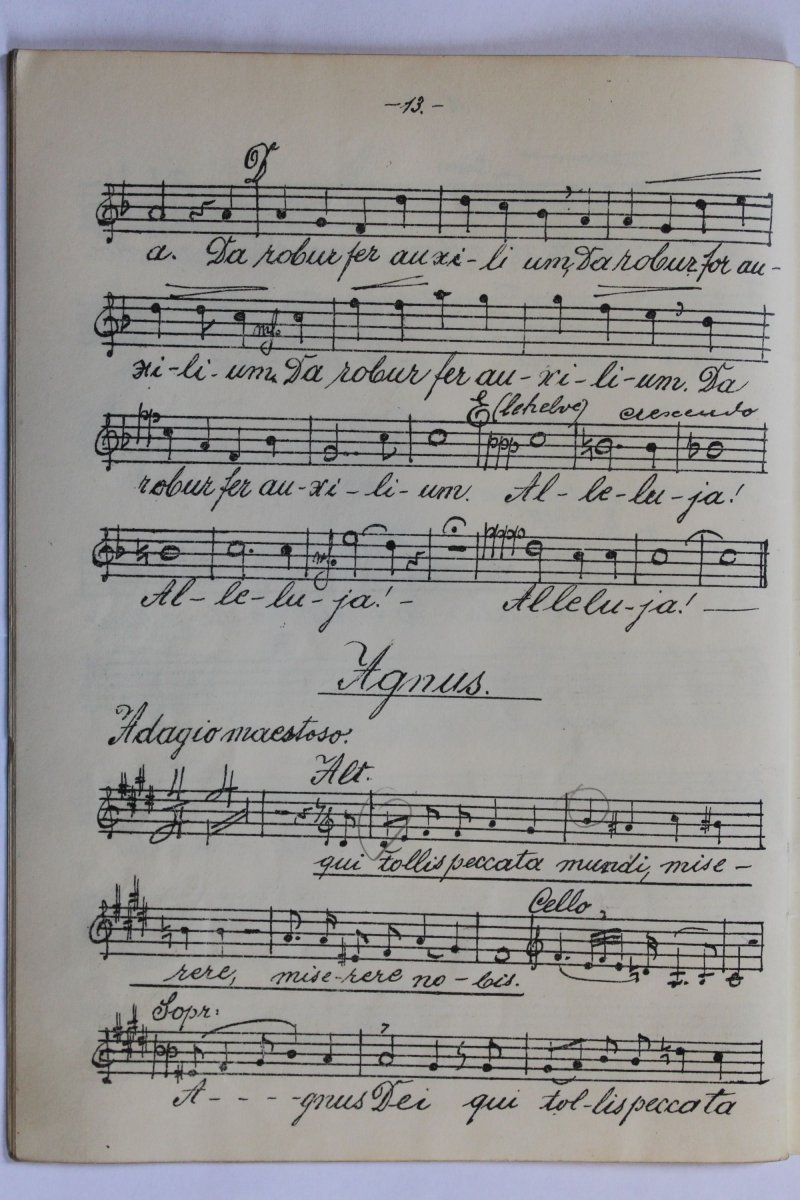 -13.-
D
a. Da robur fer auxi-li um, Da robur for au-
mf.
xi-li-um. Da robur fer au-xi-li-um. Da
E (lehelve) crescendo
robur fer au-xi-li-um. Al-le-lu-ja!
mf.
Al-le-lu-ja!- Allelu-ja! —
Agnus.
Adagio maestoso.
Alt.
4 4
qui tollis peccata mundi, mise-
Cello
rere, mise-rere no-bis.
Sopr:
A- - - -gnus Dei qui tol-lis peccata